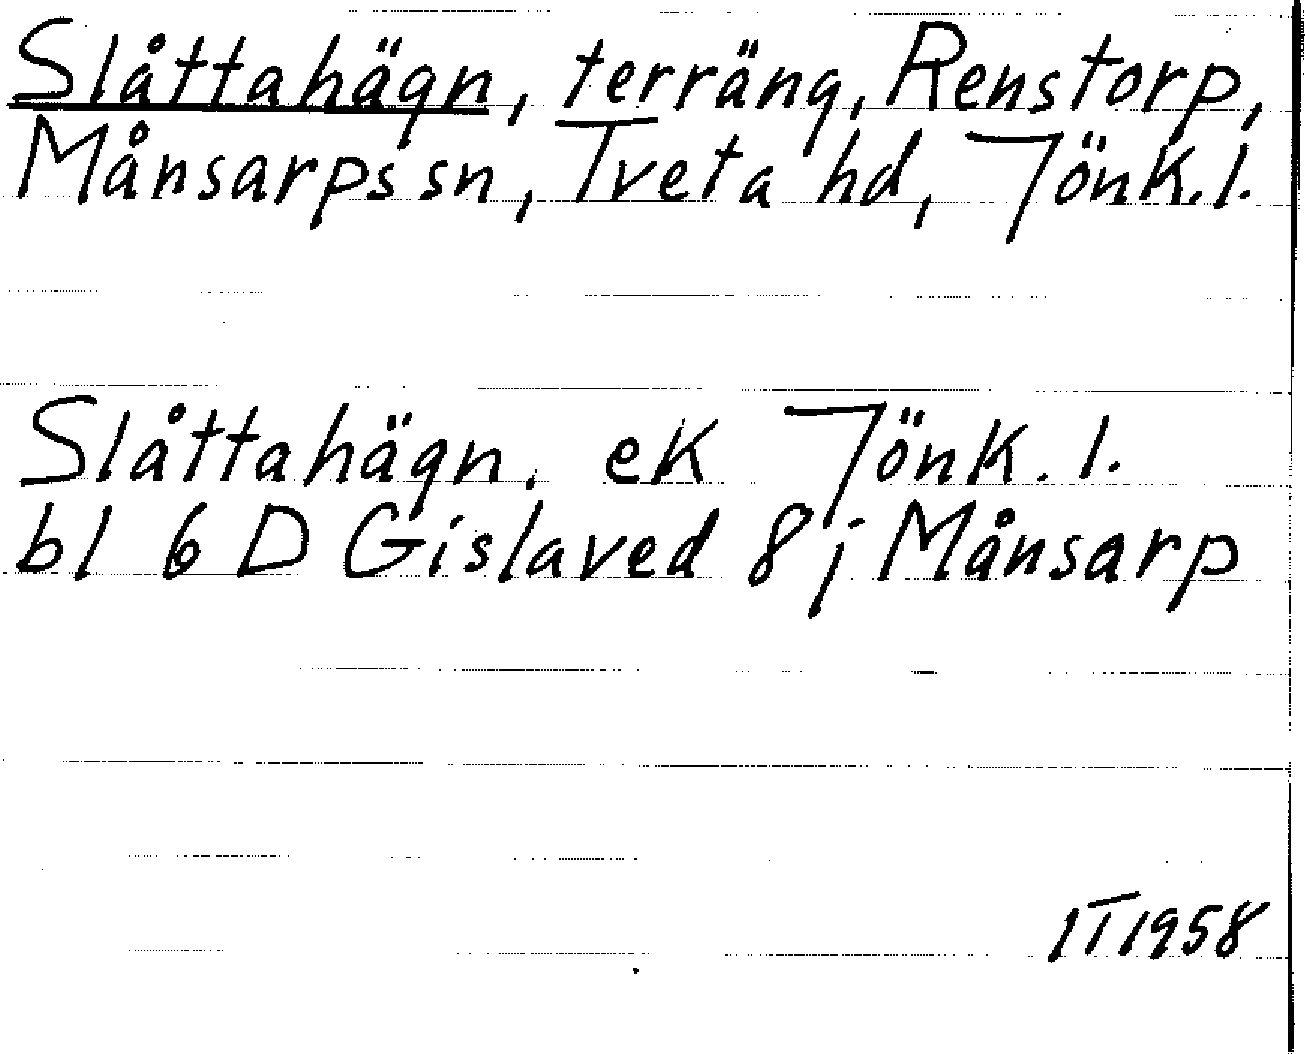 Slåttahägn, terräng, Renstorp,
Månsarps sn, Tveta hd, Jönk.l.
Slåttahägn, ek Jönk.l.
bl 6 D Gislaved 8 j Månsarp
IT1958